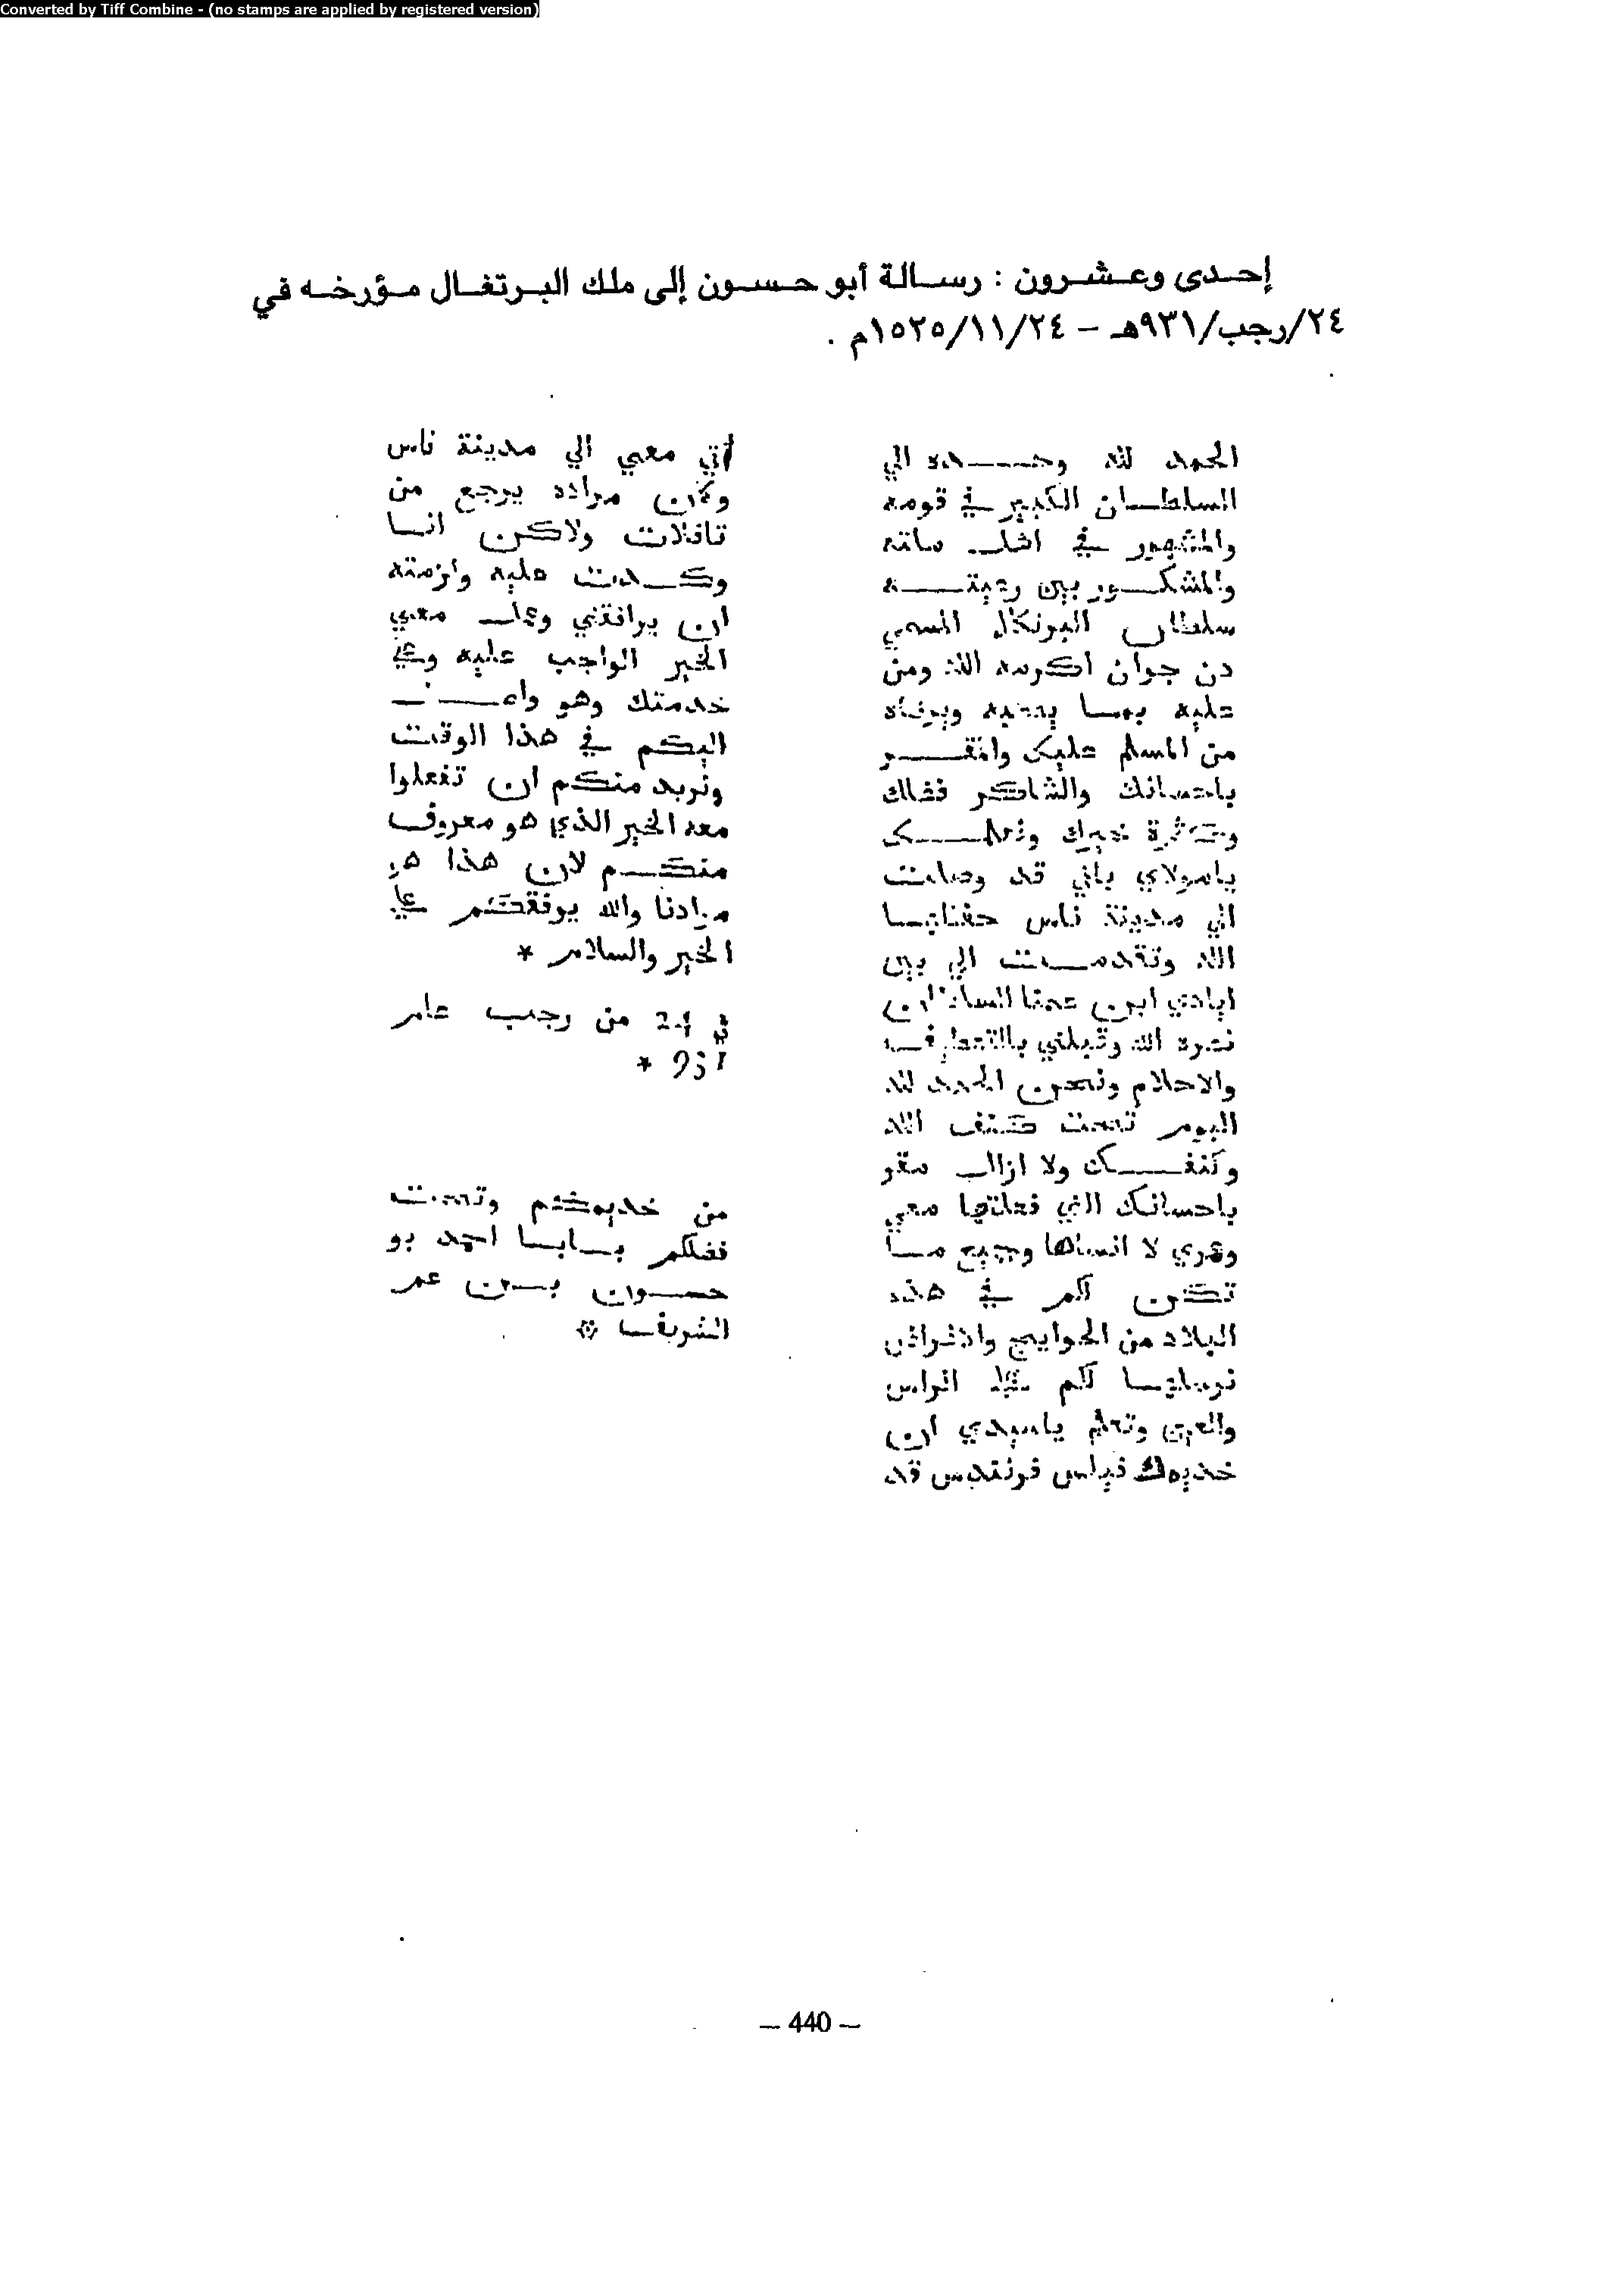 Converted by Tiff Combine - (no stamps are applied by registered version)
إحدى وعشرون : رسالة أبو حسون إلى ملك البرتغال مؤرخه في
٢٤/رجب/٩٣١هـ – ١٥٢٥/١١/٢٤م .
الحمد لله وحده الي
السلطان الكبير في قومه
والمشهور في
والمشكور بين رعيته
سلطان البرتكال المسمي
دن جوان اكرمه الله ومن
عليه بما يرضيه ويرضاه
من المسلم عليك والمقر
باحسانك والشاكر فضلك
وكثرة خيرك ونعلمك
يامولاي باني قد وصلت
الي مدينة فاس حفظها
الله وتقدمت الي بين
ايادي ابن عمنا السلطان
نصره الله وقبلني بالتعطف
والاحلام ونحن الحمد لله
اليوم تحت كنف الله
وكنفك ولا ازال مقر
باحسانك التي فعلتها معي
وعمري لا انساها وجميع ما
تكن لكم في هذه
البلاد من الحوايج والاغراض
نرسلها لكم علي الراس
والعين وتعلم ياسيدي ان
خديمك فرنندس قد
اتي معي الي مدينة فاس
وكان مراده يرجع من
تافلالت ولاكن انا
وكدت عليه والزمته
ان يرافقني وعمل معي
الخير الواجب عليه وعلي
خدمتك وهو
اليكم في هذا الوقت
ونريد منكم ان تفعلوا
معه الخير الذي هو معروف
منكم لان هذا هو
مرادنا والله يوفقكم علي
الخير والسلام *
في 24 من رجب عام
931 *
من خديمكم وتحت
فضلكم بابا احمد بو
حسون بن عمر
الشريف
– 440 –